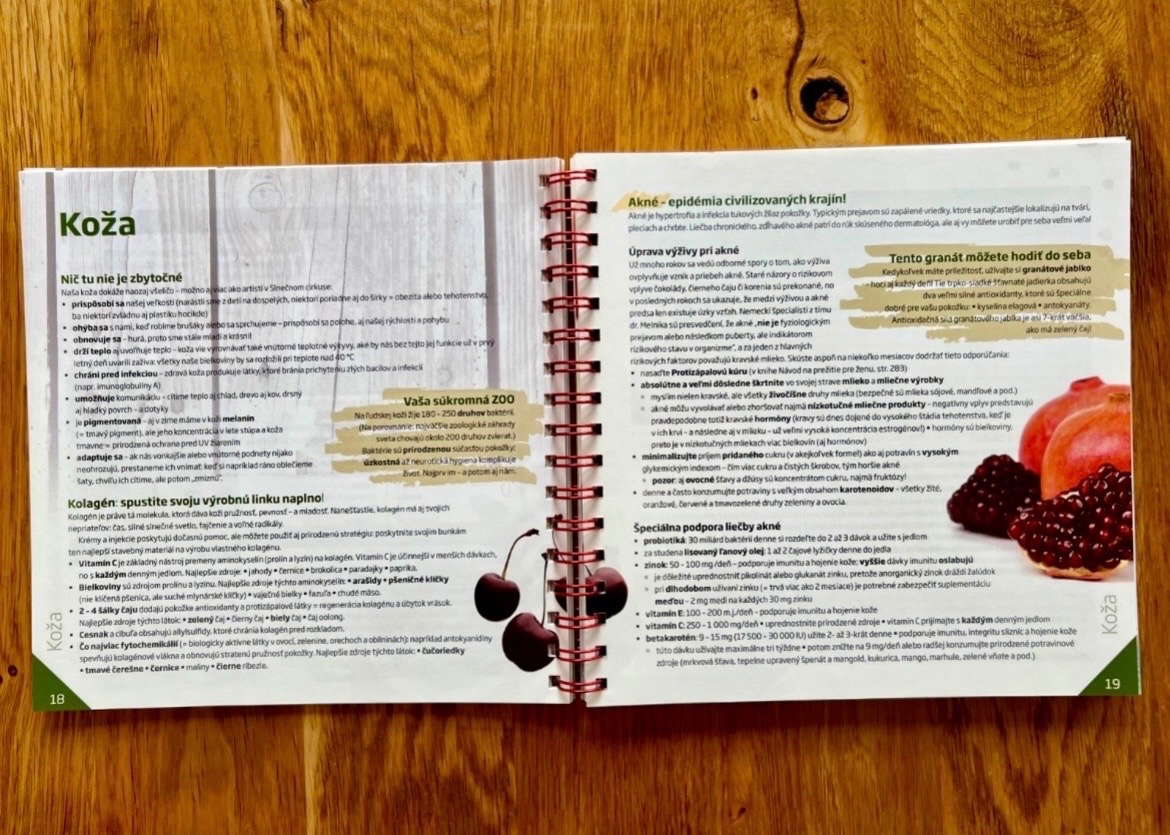 Koža
Nič tu nie je zbytočné
Naša koža dokáže naozaj všeličo – možno aj viac ako artisti v Slnečnom cirkuse:
• prispôsobí sa našej veľkosti (narásti sme z detí na dospelých, niektorí poriadne aj do šírky = obezita alebo tehotenstvo,
ba niektorí zvládnu aj plastiku hocikde)
• ohýba sa s nami, keď robíme brušáky alebo sa sprchujeme – prispôsobí sa polohe, aj našej rýchlosti a pohybu
• obnovuje sa – hurá, preto sme stále mladí a krásni!
• drží teplo aj uvoľňuje teplo – koža vie vyrovnávať také vnútorné teplotné výkyvy, aké by nás bez tejto jej funkcie už v prvý
letný deň uvarili zaživa: všetky naše bielkoviny by sa rozložili pri teplote nad 40 °C
• chráni pred infekciou – zdravá koža produkuje látky, ktoré bránia prichyteniu zlých bacilov a infekcií
(napr. imunoglobulíny A)
• umožňuje komunikáciu – cítime teplo aj chlad, drevo aj kov, drsný
aj hladký povrch – a dotyky
• je pigmentovaná – aj v zime máme v koži melanín
(= tmavý pigment), ale jeho koncentrácia v lete stúpa a koža
tmavne = prirodzená ochrana pred UV žiarením
• adaptuje sa – ak nás vonkajšie alebo vnútorné podnety nijako
neohrozujú, prestaneme ich vnímať: keď si napríklad ráno oblečieme
šaty, chvíľu ich cítime, ale potom „zmiznú“.
Vaša súkromná ZOO
Na ľudskej koži žije 180 – 250 druhov baktérií.
(Na porovnanie: najväčšie zoologické záhrady
sveta chovajú okolo 200 druhov zvierat.)
Baktérie sú prirodzenou súčasťou pokožky:
úzkostná až neurotická hygiena komplikuje
život. Najprv im – a potom aj nám.
Kolagén: spustite svoju výrobnú linku naplno!
Kolagén je práve tá molekula, ktorá dáva koži pružnosť, pevnosť – a mladosť. Nanešťastie, kolagén má aj svojich
nepriateľov: čas, silné slnečné svetlo, fajčenie a voľné radikály.
Krémy a injekcie poskytujú dočasnú pomoc, ale môžete použiť aj prirodzenú stratégiu: poskytnite svojim bunkám
ten najlepší stavebný materiál na výrobu vlastného kolagénu.
• Vitamín C je základný nástroj premeny aminokyselín (prolín a lyzín) na kolagén. Vitamín C je účinnejší v menších dávkach,
no s každým denným jedlom. Najlepšie zdroje: • jahody • černice • brokolica • paradajky • paprika.
• Bielkoviny sú zdrojom prolínu a lyzínu. Najlepšie zdroje týchto aminokyselín: • arašidy • pšeničné klíčky
(nie klíčená pšenica, ale suché mlynárské klíčky) • vaječné bielky • fazuľa • chudé mäso.
• 2 – 4 šálky čaju dodajú pokožke antioxidanty a protizápalové látky = regenerácia kolagénu a úbytok vrások.
Najlepšie zdroje týchto látok: • zelený čaj • čierny čaj • biely čaj • čaj oolong.
• Cesnak a cibuľa obsahujú allylsulfidy, ktoré chránia kolagén pred rozkladom.
• Čo najviac fytochemikálií (= biologicky aktívne látky v ovocí, zelenine, orechoch a obilninách): napríklad antokyanidíny
spevňujú kolagénové vlákna a obnovujú stratenú pružnosť pokožky. Najlepšie zdroje týchto látok: • čučoriedky
• tmavé čerešne • černice • maliny • čierne ríbezle.
Koža
18
Akné – epidémia civilizovaných krajín!
Akné je hypertrofia a infekcia tukových žliaz pokožky. Typickým prejavom sú zapálené vriedky, ktoré sa najčastejšie lokalizujú na tvári,
pleciach a chrbte. Liečba chronického, zdĺhavého akné patrí do rúk skúseného dermatológa, ale aj vy môžete urobiť pre seba veľmi veľa!
Úprava výživy pri akné
Už mnoho rokov sa vedú odborné spory o tom, ako výživa
ovplyvňuje vznik a priebeh akné. Staré názory o rizikovom
vplyve čokolády, čierneho čaju či korenia sú prekonané, no
v posledných rokoch sa ukazuje, že medzi výživou a akné
predsa len existuje úzky vzťah. Nemeckí špecialisti z tímu
dr. Melnika sú presvedčení, že akné „nie je fyziologickým
prejavom alebo následkom puberty, ale indikátorom
rizikového stavu v organizme“, a za jeden z hlavných
rizikových faktorov považujú kravské mlieko. Skúste aspoň na niekoľko mesiacov dodržať tieto odporúčania:
• nasaďte Protizápalovú kúru (v knihe Návod na prežitie pre ženu, str. 283)
• absolútne a veľmi dôsledne škrtnite vo svojej strave mlieko a mliečne výrobky
• myslím nielen kravské, ale všetky živočíšne druhy mlieka (bezpečné sú mlieka sójové, mandľové a pod.)
• akné môžu vyvolávať alebo zhoršovať najmä nízkotučné mliečne produkty – negatívny vplyv predstavujú
pravdepodobne totiž kravské hormóny (kravy sú dnes dojené do vysokého štádia tehotenstva, keď je
v ich krvi – a následne aj v mlieku – už veľmi vysoká koncentrácia estrogénov!) • hormóny sú bielkoviny,
preto je v nízkotučných mliekach viac bielkovín (aj hormónov)
• minimalizujte príjem pridaného cukru (v akejkoľvek forme!) ako aj potravín s vysokým
glykemickým indexom – čím viac cukru a čistých škrobov, tým horšie akné
• pozor: aj ovocné šťavy a džúsy sú koncentrátom cukru, najmä fruktózy!
• denne a často konzumujte potraviny s veľkým obsahom karotenoidov – všetky žlté,
oranžové, červené a tmavozelené druhy zeleniny a ovocia.
Tento granát môžete hodiť do seba
Kedykoľvek máte príležitosť, užívajte si granátové jablko
– hoci aj každý deň! Tie trpko-sladké šťavnaté jadierka obsahujú
dva veľmi silné antioxidanty, ktoré sú špeciálne
dobré pre vašu pokožku: • kyselina elagová • antokyanáty.
Antioxidačná sila granátového jablka je asi 7-krát väčšia,
ako má zelený čaj!
Špeciálna podpora liečby akné
• probiotiká: 30 miliárd baktérií denne si rozdeľte do 2 až 3 dávok a užite s jedlom
• za studena lisovaný ľanový olej: 1 až 2 čajové lyžičky denne do jedla
• zinok: 50 – 100 mg/deň – podporuje imunitu a hojenie kože; vyššie dávky imunitu oslabujú
• je dôležité uprednostniť pikolinát alebo glukanát zinku, pretože anorganický zinok dráždi žalúdok
• pri dlhodobom užívaní zinku (= trvá viac ako 2 mesiace) je potrebné zabezpečiť suplementáciu
meďou – 2 mg medi na každých 30 mg zinku
• vitamín E: 100 – 200 m.j./deň – podporuje imunitu a hojenie kože
• vitamín C: 250 – 1 000 mg/deň • uprednostnite prirodzené zdroje • vitamín C prijímajte s každým denným jedlom
• betakarotén: 9 – 15 mg (17 500 – 30 000 IU) užite 2- až 3-krát denne • podporuje imunitu, integritu slizníc a hojenie kože
• túto dávku užívajte maximálne tri týždne • potom znížte na 9 mg/deň alebo radšej konzumujte prirodzené potravinové
zdroje (mrkvová šťava, tepelne upravený špenát a mangold, kukurica, mango, marhule, zelené vňate a pod.)
Koža
19